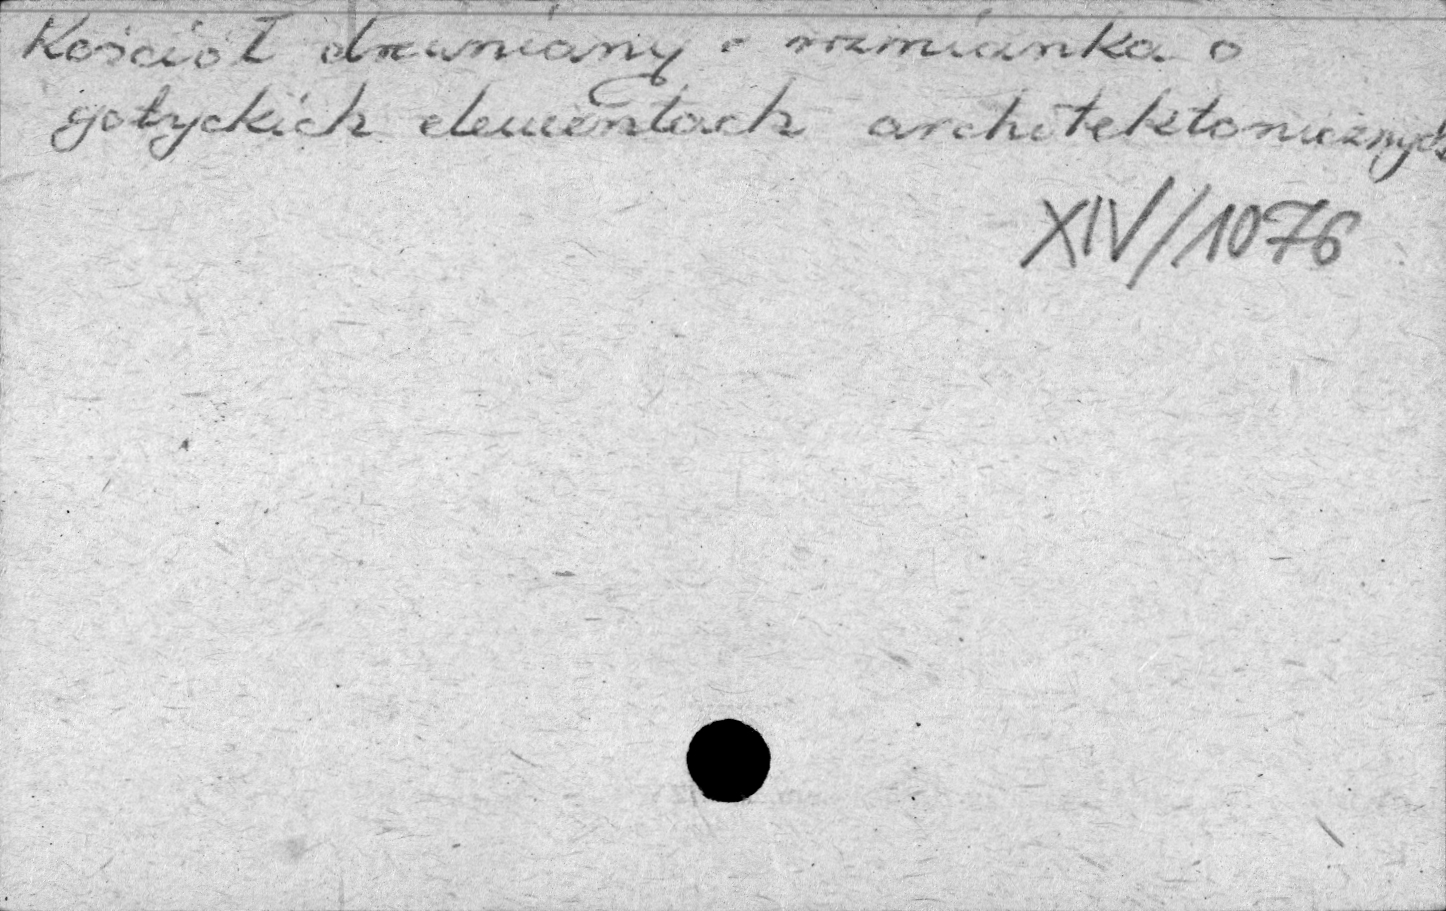 Kościół drewniany - wzmianka o
gotyckich elementach architektonicznych
XIV/1076